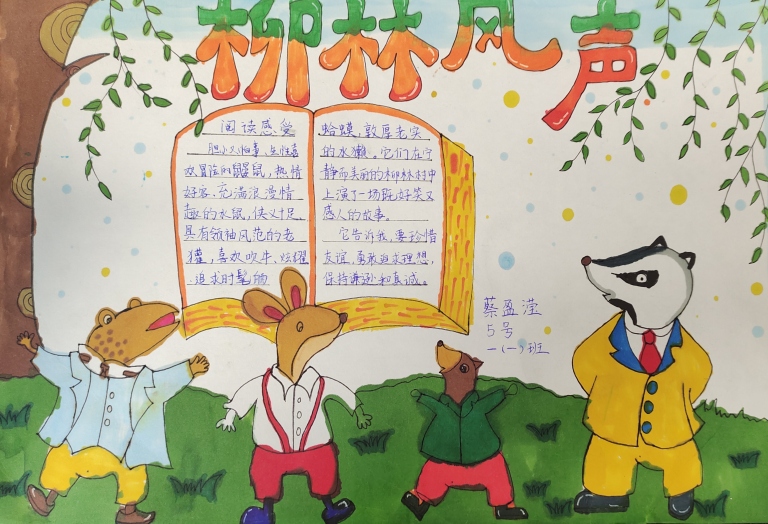 柳林风声
阅读感受
胆小又怕事、生性喜
欢冒险的鼹鼠，热情
好客、充满浪漫情
趣的水鼠，侠义十足、
具有领袖风范的老
獾，喜欢吹牛、炫耀
、追求时髦的
蛤蟆，敦厚老实
的水獭。它们在宁
静而美丽的柳林村中
上演了一场既好笑又
感人的故事。
它告诉我，要珍惜
友谊，勇敢追求理想，
保持谦逊和真诚。
蔡盈滢
5号
一(一)班